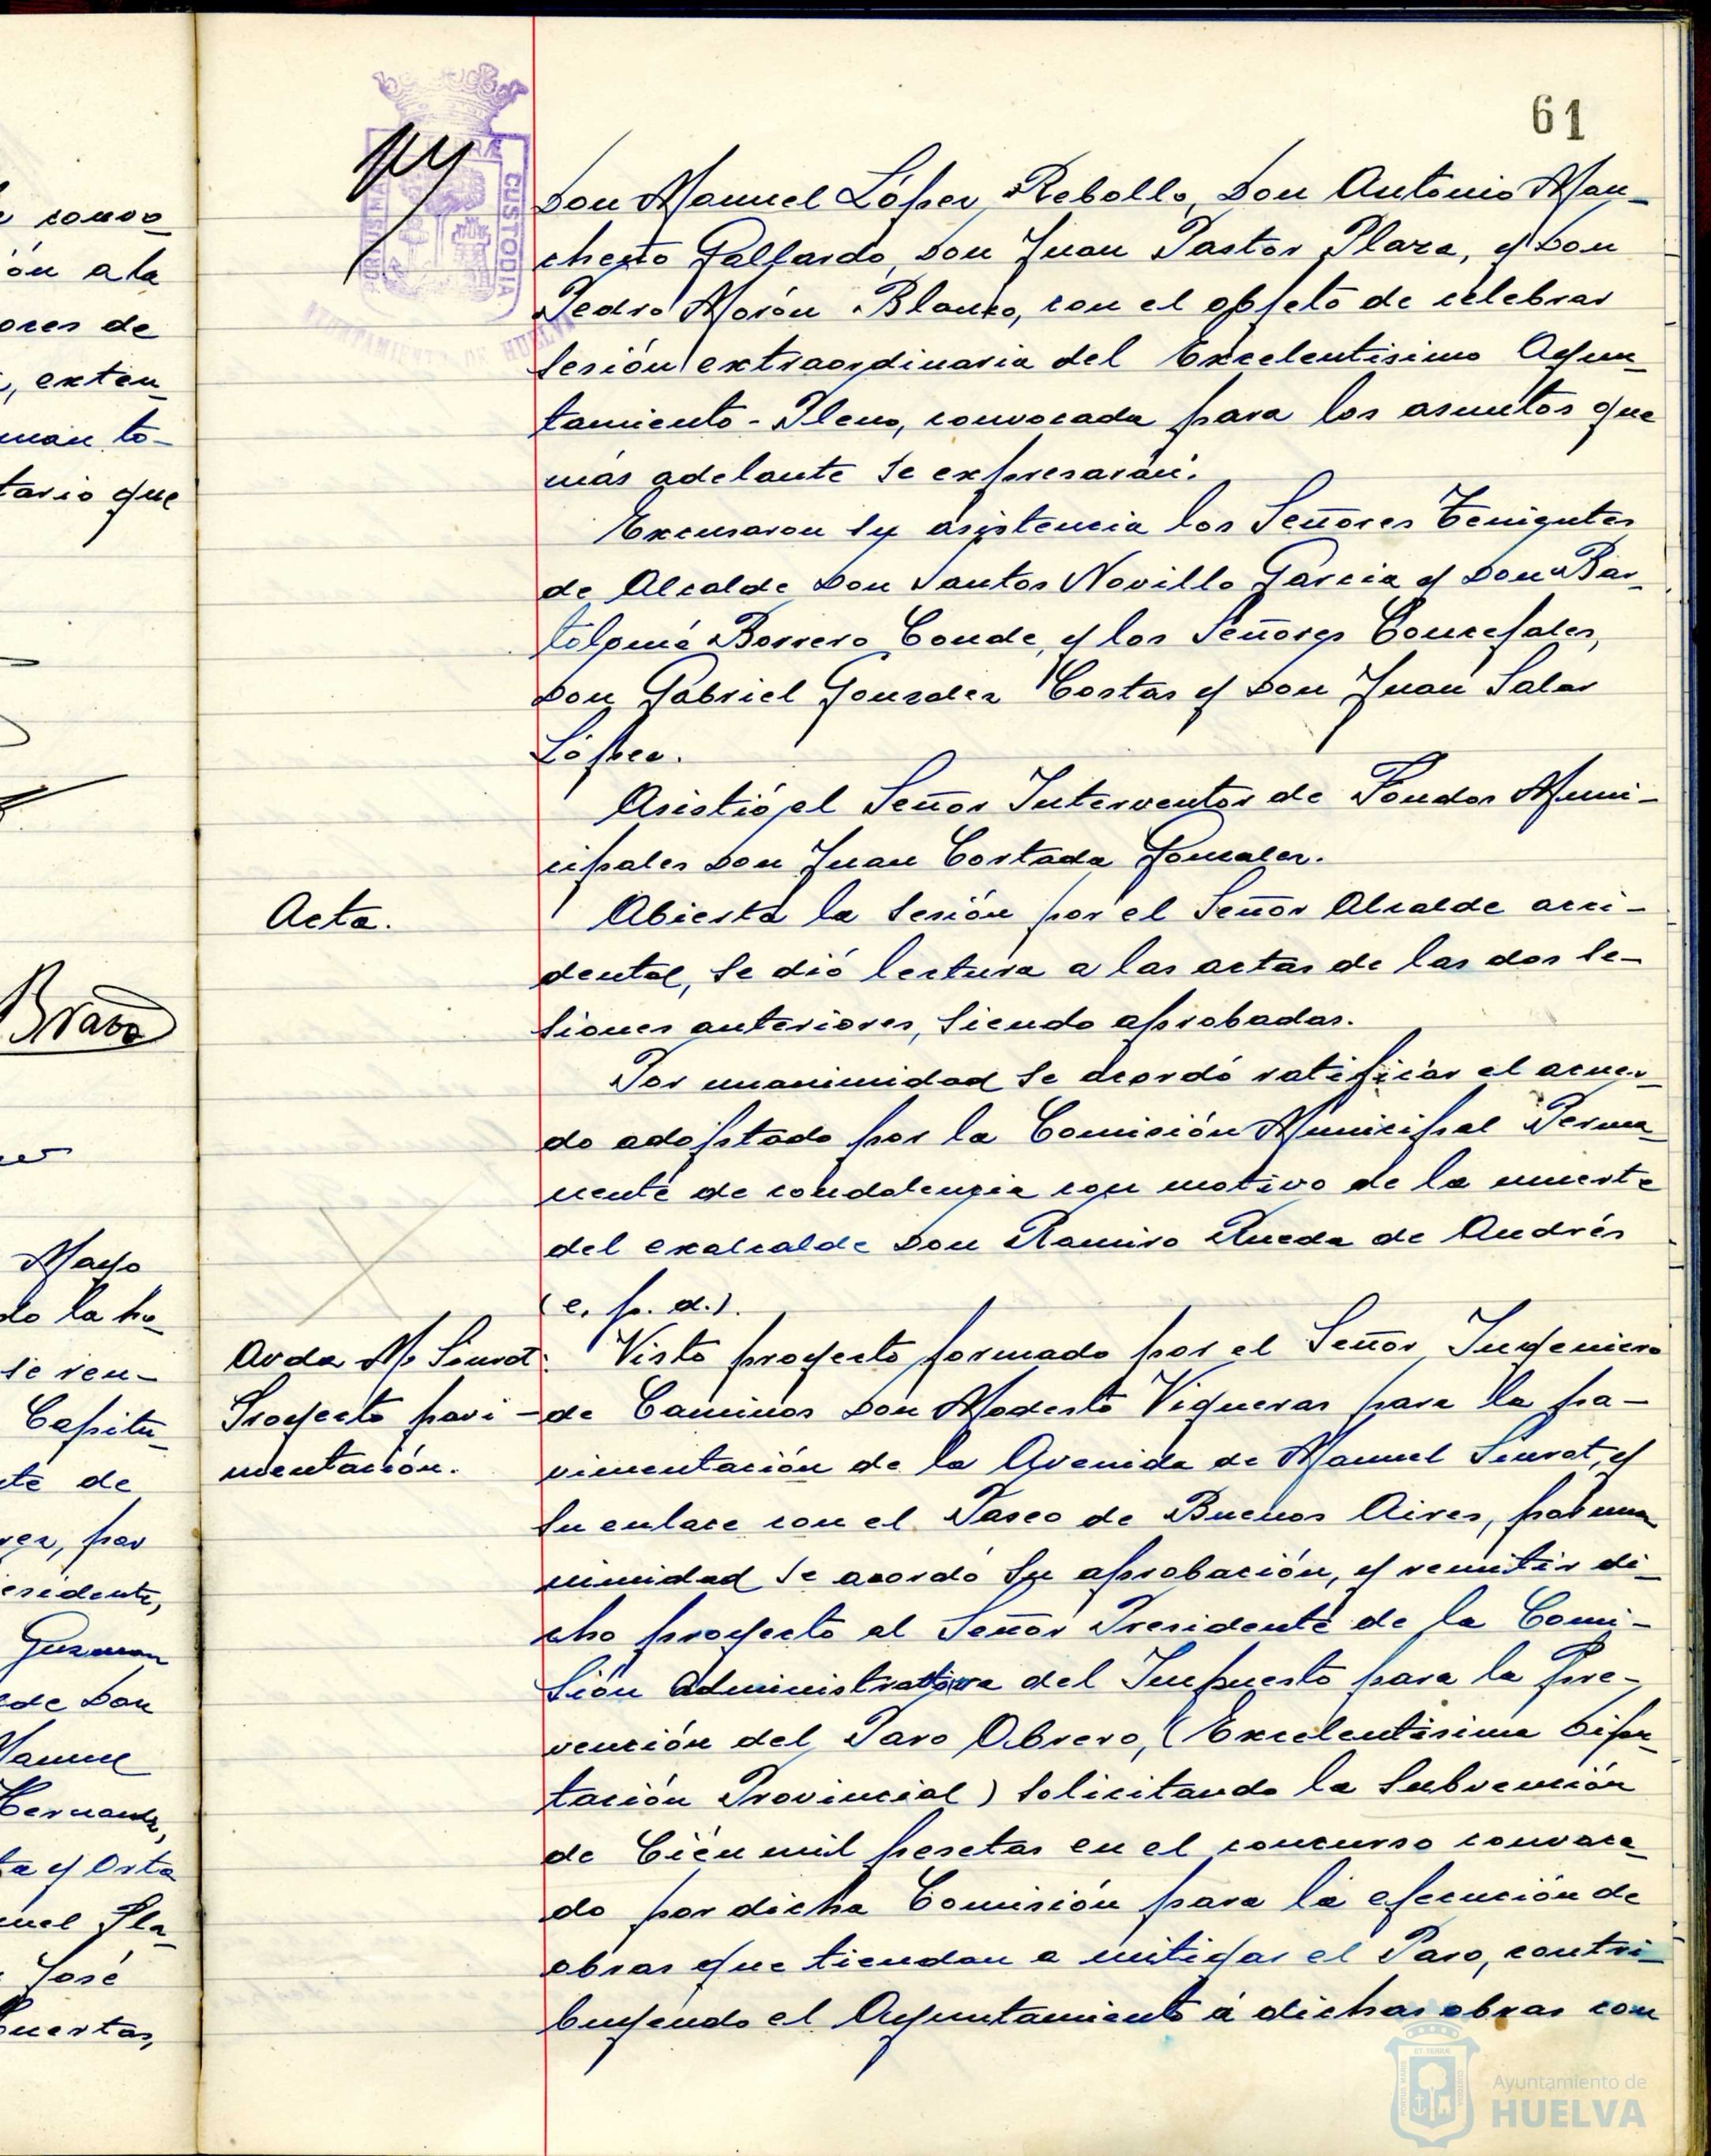 61
Don Manuel López Rebollo, Don Antonio Man-
cheño Gallardo, Don Juan Pastor Plaza, y Don
Pedro Morón Blanco, con el objeto de celebrar
sesión extraordinaria del Excelentisimo Ayun-
tamiento-Pleno, convocada para los asuntos que
más adelante se expresarán.
Excusaron su asistencia los Señores Tenientes
de Alcalde Don Santos Novillo Garcia y Don Bar-
tolomé Borrero Conde, y los Señores Concejales,
Don Gabriel Gonzalez Costas y Don Juan Salar
López.
Asistió el Señor Interventor de Fondos Muni-
cipales Don Juan Cortada Gonzalez.
Acta.
Abierta la sesión por el Señor Alcalde acci-
dental, se dió lectura a las actas de las dos se-
siones anteriores, siendo aprobadas.
Por unanimidad se acordó ratificar el acuer-
do adoptado por la Comisión Municipal Perma-
nente de condolencia con motivo de la muerte
del exalcalde Don Ramiro Rueda de Andrés
(e. p. d.).
Avda M. Siurot.
Proyecto pavi-
mentación.
Visto proyecto formado por el Señor Ingeniero
de Caminos Don Modesto Vigueras para la pa-
vimentación de la Avenida de Manuel Siurot, y
su enlace con el Paseo de Buenos Aires, por una
nimidad se acordó su aprobación, y remitir di-
cho proyecto al Señor Presidente de la Comi-
sión Administrativa del Impuesto para la Pre-
vención del Paro Obrero, (Excelentisima Dipu-
tación Provincial) solicitando la subvención
de Cién mil pesetas en el concurso convoca-
do por dicha Comisión para la ejecución de
obras que tiendan a mitigar el Paro, contri-
buyendo el Ayuntamiento á dichas obras con
CUSTODIA
AYUNTAMIENTO DE HUELVA
ón a la
ores de
, exten-
tario que
Bravo
Mayo
do la ho-
se reu-
Capitu-
te de
por
esidente,
Guzman
de Don
Manuel
Hernandez,
ta y Orta
uel Pla-
José
uertas,
Ayuntamiento de
HUELVA